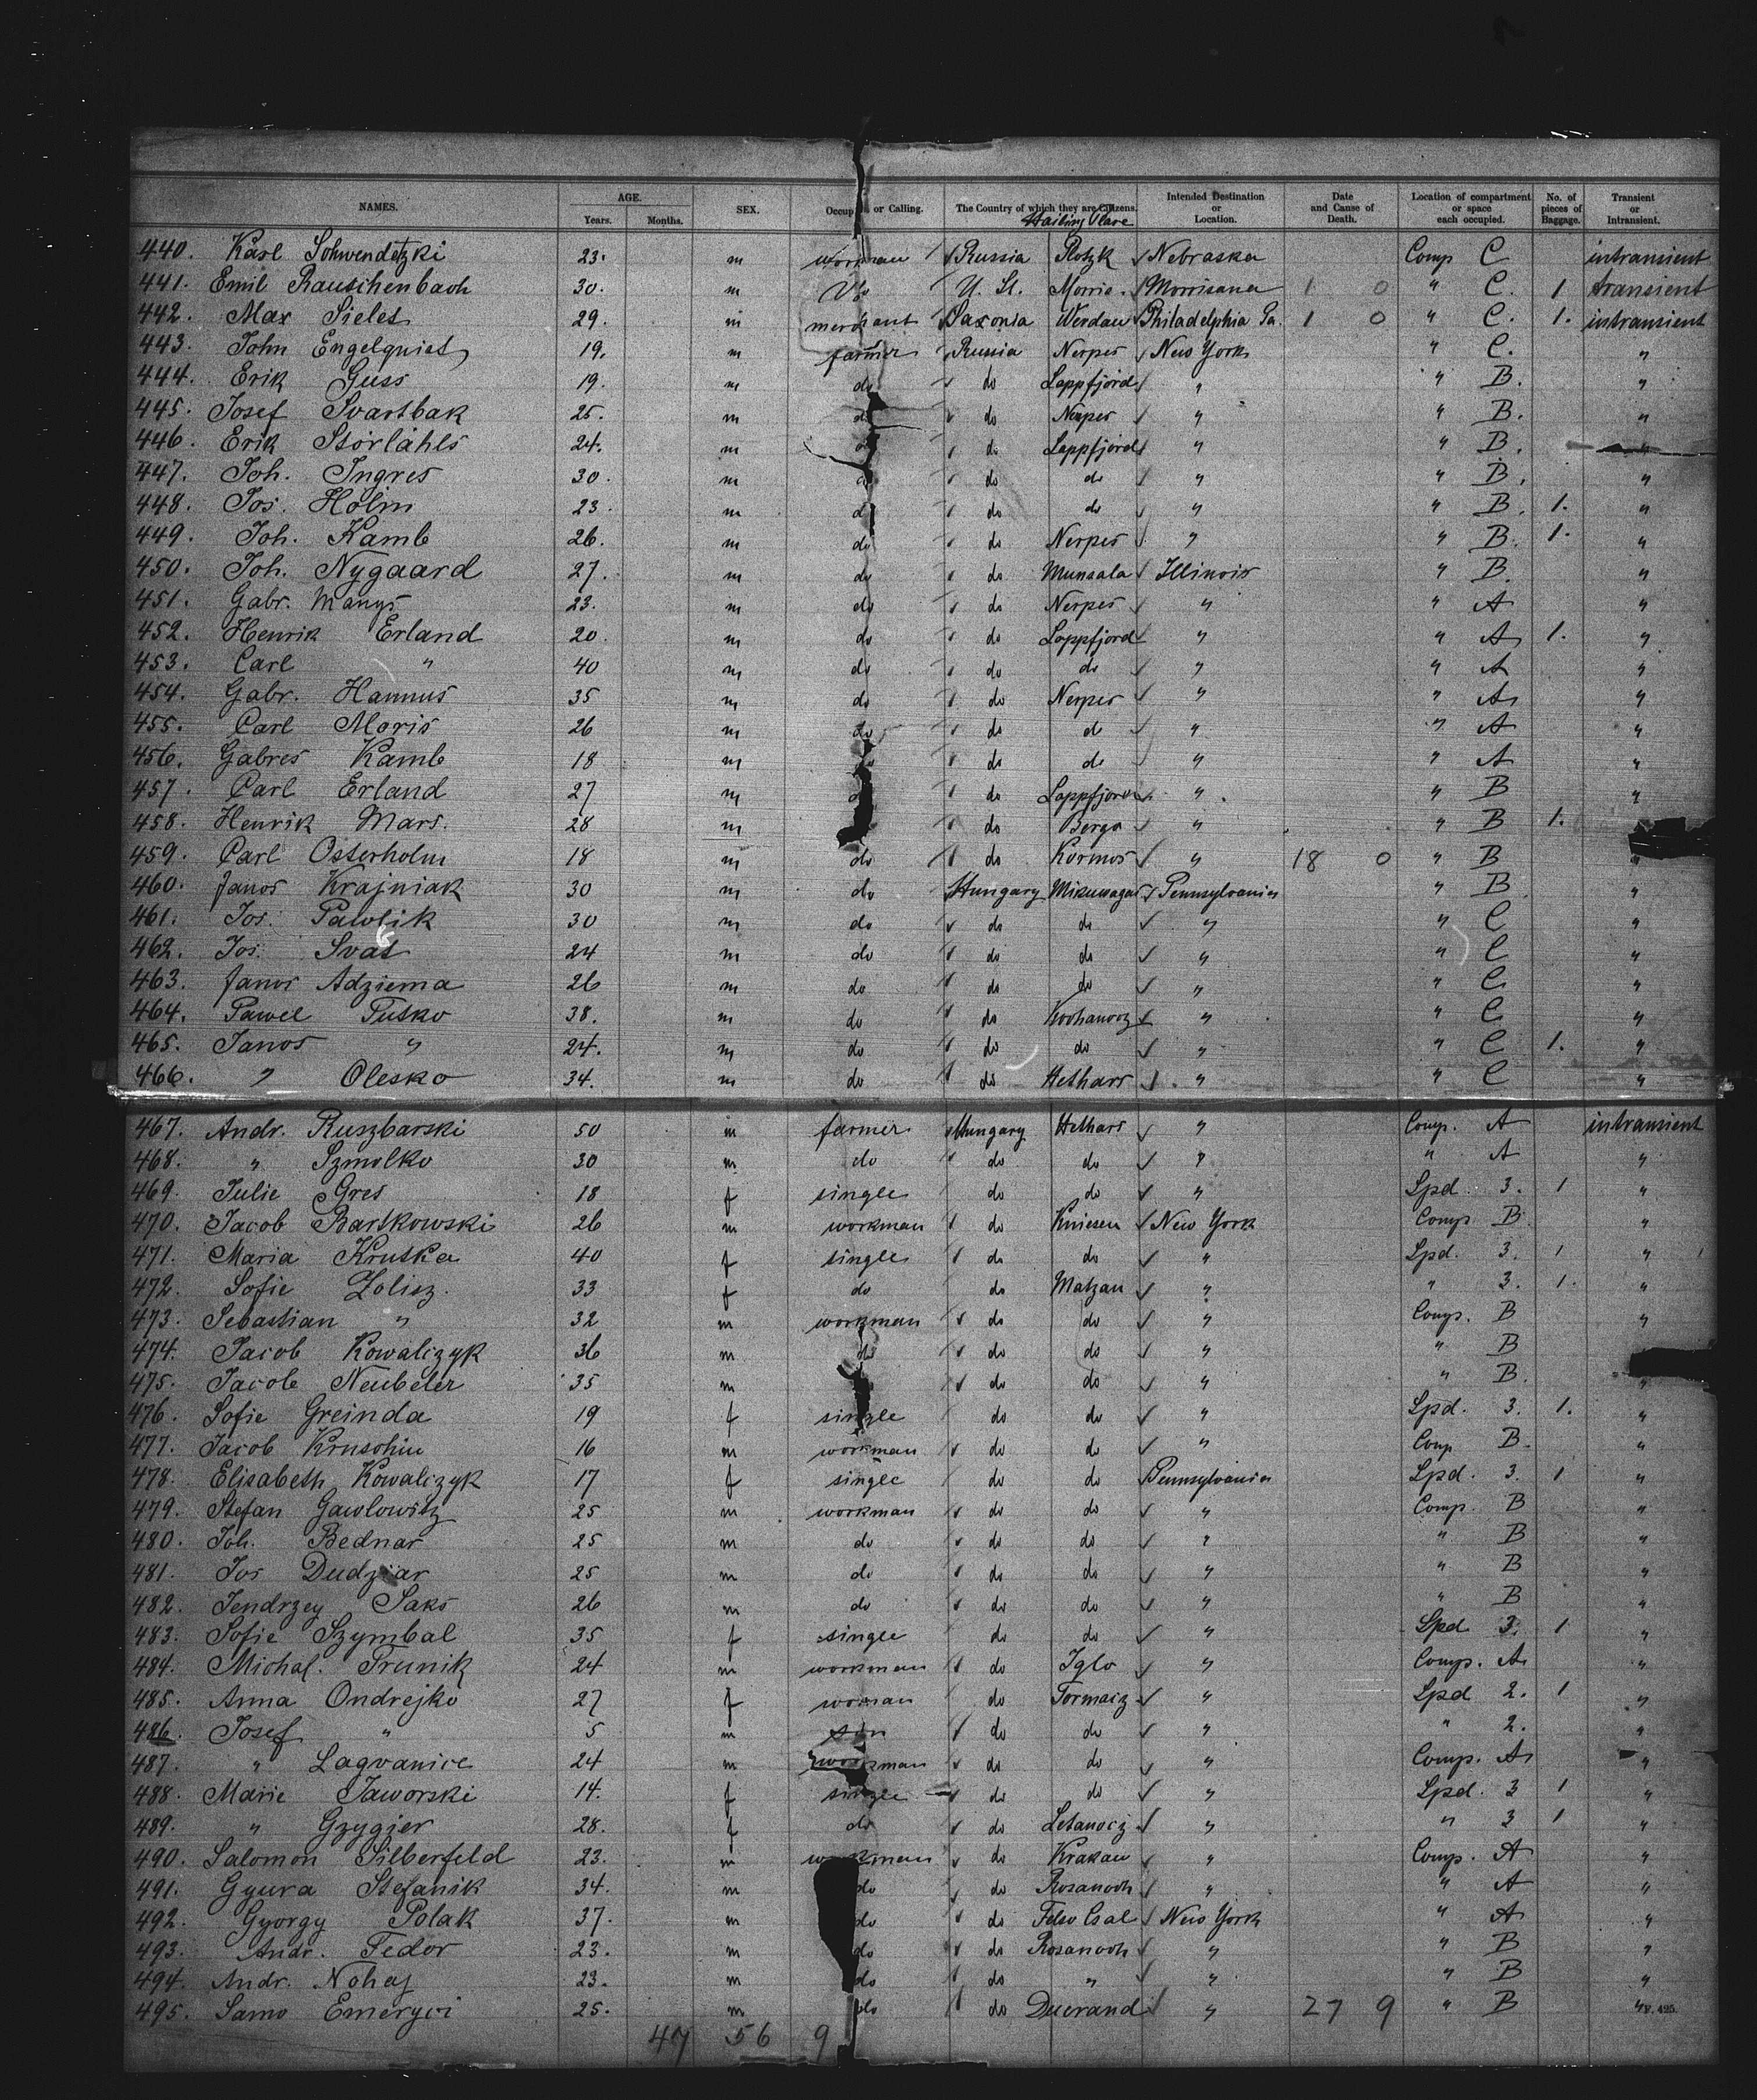 NAMES. AGE. Years. Months. SEX. Occupation or Calling. The Country of which they are Citizens. Hailing Place Intended Destination or Location. Date and Cause of Death. Location of compartment or space each occupied. No. of pieces of Baggage. Transient or Intransient.
440. Karl Schwendetzki 23. m workman Russia Plotzk Nebraska Comp C intransient
441. Emil Rauschenbach 30. m U. St. Morris. Morrisana 1 0 " C. 1 transient
442. Max Sieles 29. m merchant Saxonia Werdau Philadelphia Pa. 1 0 " C. 1. intransient
443. John Engelquist 19. m farmer Russia Nerpes New York " C. "
444. Erik Guss 19. m do do Lappfjord " " B. "
445. Josef Svartbak 25. m do do Nerpes " " B. "
446. Erik Storlåhls 24. m do Lappfjord " " B. "
447. Joh. Ingres 30. m do do " " B. "
448. Jos. Holm 23. m do do " " B. 1. "
449. Joh. Kamb 26. m do do Nerpes " " B. 1. "
450. Joh. Nygaard 27. m do do Munsala Illinois " B. "
451. Gabr. Mangs 23. m do do Nerpes " " A "
452. Henrik Erland 20. m do do Lappfjord " " A 1. "
453. Carl " 40 m do do do " " A "
454. Gabr. Hannus 35 m do do Nerpes " " A "
455. Carl Moris 26 m do do do " " A "
456. Gabres Kamb 18 m do do " " A "
457. Carl Erland 27 m do Lappfjord " " B "
458. Henrik Mars. 28 m do Borga " " B 1.
459. Carl Osterholm 18 m do do Kormos " 18 0 " B "
460. Janos Krajniak 30 m do Hungary Pennsylvania " B "
461. Jos. Pawlik 30 m do do do " " C "
462. Jos. Svat 24 m do do do " " C "
463. Janos Adziema 26 m do do do " " C "
464. Pawel Tusko 38. m do do Kochanocz " " C "
465. Janos " 24. m do do do " " C 1. "
466. " Olesko 34. m do do Hethars " " C "
467. Andr. Ruszbarski 50 m farmer Hungary Hethars " Comp. A intransient
468. " Szmolko 30 m do do do " " A "
469. Julie Gres 18 f single do do " Spd. 3. 1 "
470. Jacob Bartkowski 26 m workman do Kniesen New York Comp B "
471. Maria Kruska 40 f single do do " Spd. 3. 1 "
472. Sofie Lolisz. 33 f do do Matzau " " 3. 1. "
473. Sebastian " 32 m workman do do " Comp. B "
474. Jacob Kowalczyk 36 m do do do " " B
475. Jacob Neubeler 35 m do do " " B. "
476. Sofie Greinda 19 f single do do " Spd. 3. 1. "
477. Jacob Kruschin 16 m workman do do " Comp B. "
478. Elisabeth Kowalczyk 17 f single do do Pennsylvania Spd. 3. 1 "
479. Stefan Gawlowitz 25 m workman do do " Comp. B "
480. Joh. Bednar 25 m do do do " " B "
481. Jos Dudziar 25 m do do do " " B "
482. Jendrzey Saks 26 m do do do " " B "
483. Sofie Szymbal 35 f single do do " Spd. 3. 1 "
484. Michal. Prunik 24 m workman do Iglo " Comp. A "
485. Anna Ondrejko 27 f woman do Tormacz " Spd 2. 1 "
486. Josef " 5 m son do do " " 2. "
487. " Lagvanice 24 m workman do do " Comp. A "
488. Marie Jaworski 14. f single do do " Spd. 3 1 "
489. " Gzygier 28. f do do Letanocz " " 3 1 "
490. Salomon Silberfeld 23. m workman do Krakau " Comp. A "
491. Gyura Stefanik 34. m do do Rosanoch " " A "
492. Gyorgy Polak 37. m do do Felso Csal New York " A "
493. Andr. Fedor 23. m do do Rosanoch " " B "
494. Andr. Nohaj 23. m do do " " " B "
495. Samo Emeryci 25. m do do Ducrand " 27 9 " B "
47 56 9